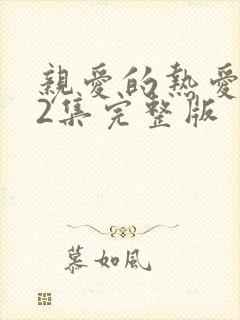 親愛的熱愛
2集完整版
慕如風